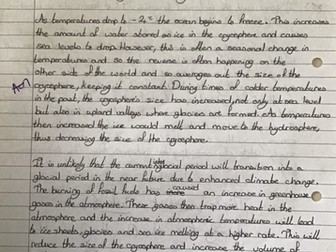 As temperatures drop to -2°c the ocean begins to freeze. This increases
the amount of water stored as ice in the cryosphere and causes
sea levels to drop. However, this is often a seasonal change in
temperatures and so the reverse is often happening on the
other side of the world and so averages out the size of the
cryosphere, keeping it constant. During times of colder temperatures
in the past, the cryosphere's size has increased, not only at sea level
but also in upland valleys where glaciers are formed. As temperatures
then increased the ice would melt and move to the hydrosphere,
thus decreasing the size of the cryosphere.
It is unlikely that the current interglacial period will transition into a
glacial period in the near future due to enhanced climate change.
The burning of fossil fuels has caused an increase in greenhouse
gases in the atmosphere. These gases then trap more heat in the
atmosphere and the increase in atmospheric temperatures will lead
to ice sheets, glaciers and sea ice melting at a higher rate. This will
reduce the size of the cryosphere and increase the volume of